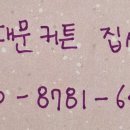 대문 커튼 집
0-8781-6